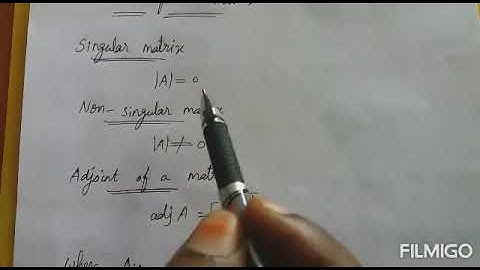 Singular matrix
|A| = 0
Non-singular
|A| ≠ 0
Adjoint of a
adj A =
where
FILMIGO